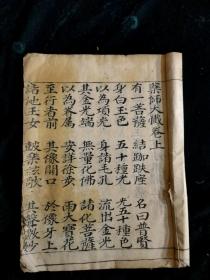 藥師大懺卷上
有一菩薩 結跏趺座 名曰普賢
身白玉色 五十種光 光五十種色
以為項光 身諸毛孔 流出金光
其金光端 無量化佛 諸化菩薩
以為眷屬 安詳徐步 雨大寶花
至行者前 其像開口 於像牙上
諸池玉女 鼓樂絃歌 其聲微妙